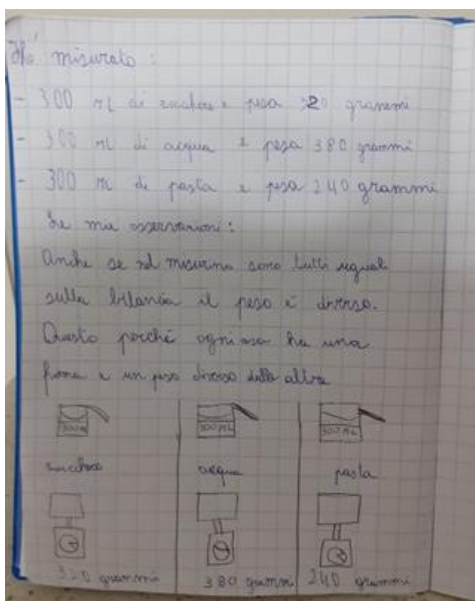 Ho misurato:
- 300 ml di zucchero e pesa 320 grammi
- 300 ml di acqua e pesa 380 grammi
- 300 ml di pasta e pesa 240 grammi
Le mie osservazioni:
Anche se nel misurino sono tutti uguali
sulla bilancia il peso è diverso.
Questo perché ogni cosa ha una
forma e un peso diverso dalla altra
300 ML 300 ML 300 ML
zucchero acqua pasta
320 grammi 380 grammi 240 grammi